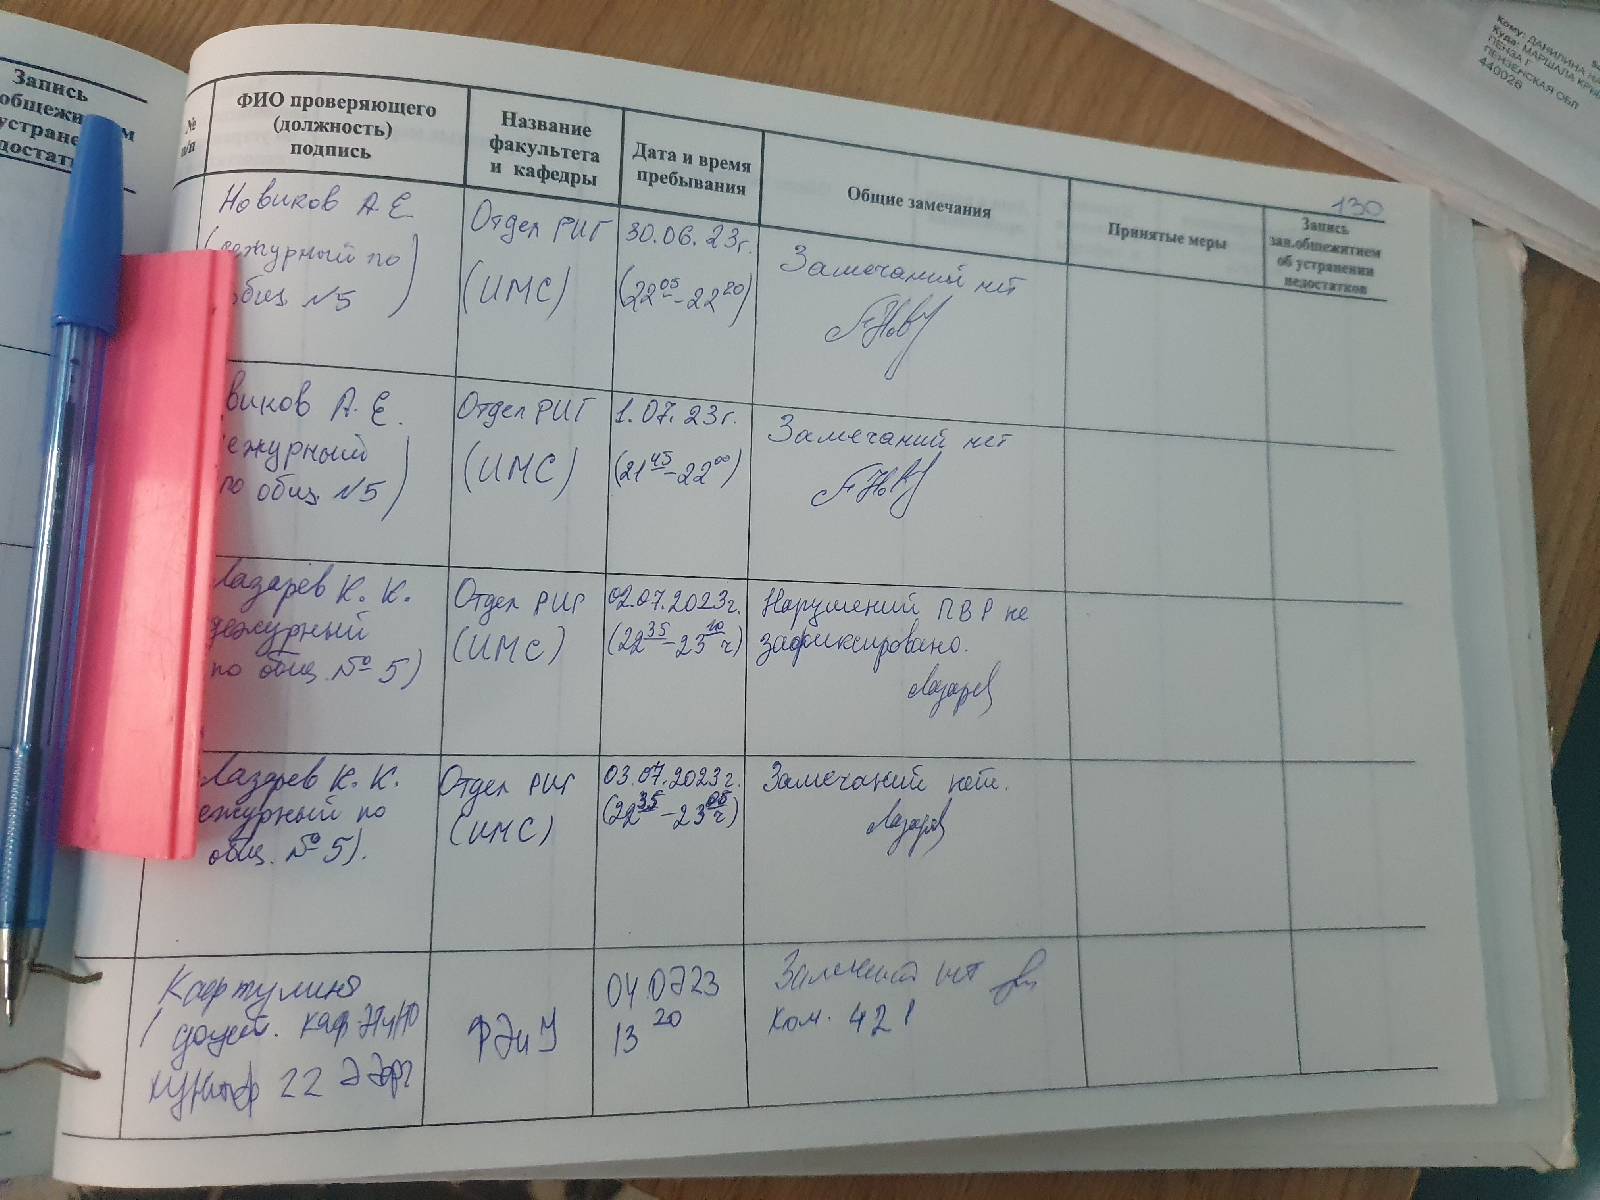 Запись
общежитием
устране
достат
Кому: ДАНИЛИНА
Куда: МАРШАЛА
ПЕНЗА Г
ПЕНЗЕНСКАЯ ОБЛ
440028
130
№
п/п
ФИО проверяющего
(должность)
подпись
Название
факультета
и кафедры
Дата и время
пребывания
Общие замечания
Принятые меры
Запись
зав.общежитием
об устранении
недостатков
Новиков А Е
(дежурный по
общ. №5)
Отдел РИГ
(ИМС)
30.06.23г.
(22 05 - 22 20)
Замечаний нет
виков А. Е.
ежурный
по общ. №5)
Отдел РИГ
(ИМС)
1.07.23г.
(21 45 - 22 00)
Замечаний нет
Лазарев К. К.
дежурный
по общ. № 5)
Отдел РИГ
(ИМС)
02.07.2023г.
(22 35 - 23 10 ч)
Нарушений ПВР не
зафиксировано.
Лазарев
Лазарев К. К.
ежурный по
общ. № 5).
Отдел РИГ
(ИМС)
03.07.2023г.
(22 35 - 23 05 ч)
Замечаний нет.
Лазарев
22
ФЭиУ
04.0723
13 20
Замечаний нет
Ком. 421